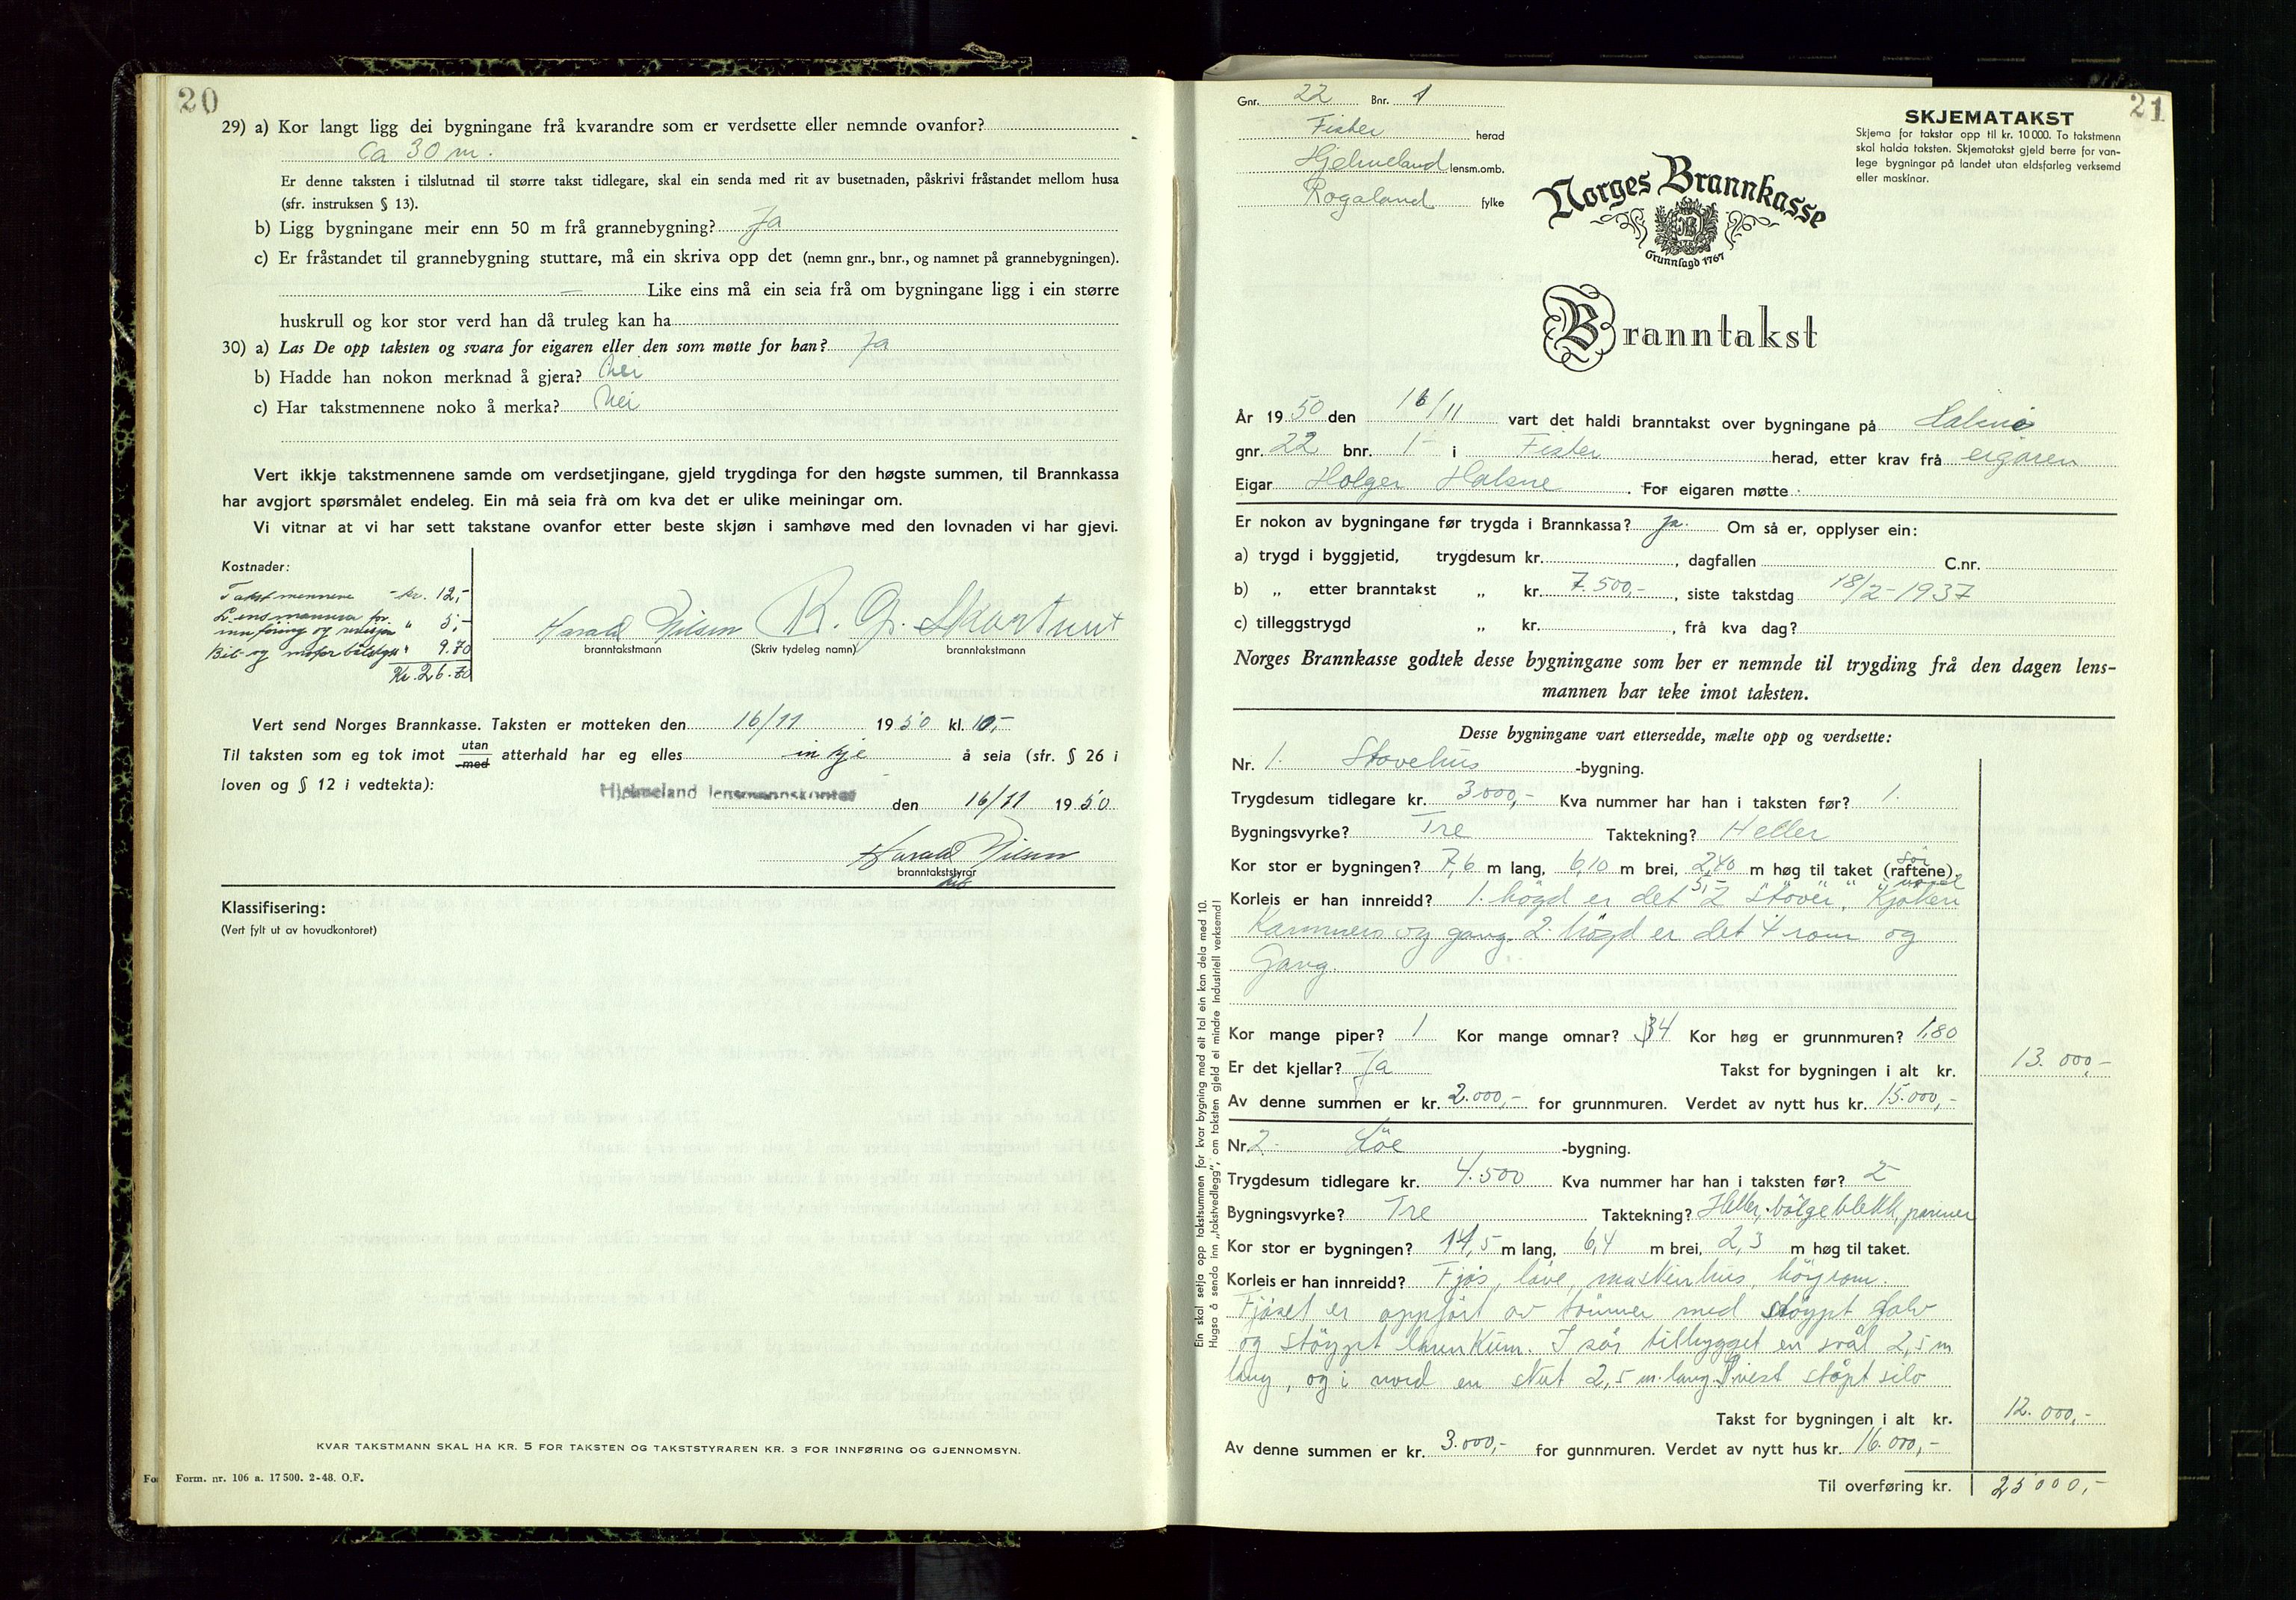 20
29) a) Kor langt ligg dei bygningane frå kvarandre som er verdsette eller nemnde ovanfor?
Ca 30 m.
Er denne taksten i tilslutnad til større takst tidlegare, skal ein senda med rit av busetnaden, påskrivi fråstandet mellom husa
(sfr. instruksen § 13).
b) Ligg bygningane meir enn 50 m frå grannebygning? Ja
c) Er fråstandet til grannebygning stuttare, må ein skriva opp det (nemn gnr., bnr., og namnet på grannebygningen).
— Like eins må ein seia frå om bygningane ligg i ein større
huskrull og kor stor verd han då truleg kan ha
30) a) Las De opp taksten og svara for eigaren eller den som møtte for han? Ja
b) Hadde han nokon merknad å gjera? Nei
c) Har takstmennene noko å merka? Nei
Vert ikkje takstmennene samde om verdsetjingane, gjeld trygdinga for den høgste summen, til Brannkassa
har avgjort spørsmålet endeleg. Ein må seia frå om kva det er ulike meiningar om.
Vi vitnar at vi har sett takstane ovanfor etter beste skjøn i samhøve med den lovnaden vi har gjevi.
Kostnader:
Takstmennene - kr. 12,-
Lensmannen for
innføring og " 5,-
Bil- og " 9.70
Kr. 26.70
Harald Nilsen R. G. Skartveit
branntakstmann (Skriv tydeleg namn) branntakstmann
Vert send Norges Brannkasse. Taksten er motteken den 16/11 1950 kl. 10,-
Til taksten som eg tok imot utan/med atterhald har eg elles inkje å seia (sfr. § 26 i
loven og § 12 i vedtekta):
Hjelmeland lensmannskontor den 16/11 1950
Harald Nilsen
branntakststyrar
Klassifisering:
(Vert fylt ut av hovudkontoret)
KVAR TAKSTMANN SKAL HA KR. 5 FOR TAKSTEN OG TAKSTSTYRAREN KR. 3 FOR INNFØRING OG GJENNOMSYN.
Fo Form. nr. 106 a. 17 500. 2-48. O.F.
21
Gnr. 22 Bnr. 1
Fister herad
Hjelmeland lensm.omb.
Rogaland fylke
SKJEMATAKST
Skjema for takstar opp til kr. 10 000. To takstmenn
skal halda taksten. Skjematakst gjeld berre for van-
lege bygningar på landet utan eldsfarleg verksemd
eller maskinar.
Norges Brannkasse
Grunnlagd 1767
Branntakst
År 1950 den 16/11 vart det haldi branntakst over bygningane på Halsne
gnr. 22 bnr. 1 i Fister herad, etter krav frå eigaren
Eigar Holger Halsne. For eigaren møtte
Er nokon av bygningane før trygda i Brannkassa? Ja. Om så er, opplyser ein:
a) trygd i byggjetid, trygdesum kr. , dagfallen C.nr.
b) „ etter branntakst „ kr. 7.500,- , siste takstdag 18/2-1937
c) tilleggstrygd „ kr. , frå kva dag?
Norges Brannkasse godtek desse bygningane som her er nemnde til trygding frå den dagen lens-
mannen har teke imot taksten.
Desse bygningane vart ettersedde, mælte opp og verdsette:
Nr. 1. Stovehus -bygning.
Trygdesum tidlegare kr. 3000,- Kva nummer har han i taksten før? 1.
Bygningsvyrke? Tre Taktekning? Heller
Kor stor er bygningen? 7,6 m lang, 6,10 m brei, 2,40 m høg til taket (raftene).
Korleis er han innreidd? 1. högd er det 2 stover, Kjøken
Kammers og gang. 2. högd er det 4 rom og
Gang.
Kor mange piper? 1 Kor mange omnar? 34 Kor høg er grunnmuren? 1,80
Er det kjellar? Ja Takst for bygningen i alt kr. 13.000,-
Av denne summen er kr. 2.000,- for grunnmuren. Verdet av nytt hus kr. 15.000,-
Nr. 2. Löe -bygning.
Trygdesum tidlegare kr. 4.500 Kva nummer har han i taksten før? 2
Bygningsvyrke? Tre Taktekning? Heller, bölgeblekk, panner
Kor stor er bygningen? 14,5 m lang, 6,4 m brei, 2,3 m høg til taket.
Korleis er han innreidd? Fjös, löve, maskinhus, höyrom.
Fjöset er oppfört av tömmer med stöypt golv
og stöypt landkum. I sör tilbygget en sval 2,5 m
lang, og i nord en skut 2,5 m. lang. I vest støpt silo
Takst for bygningen i alt kr. 12.000,-
Av denne summen er kr. 3.000,- for gunnmuren. Verdet av nytt hus kr. 16.000,-
Til overføring kr. 25000,-
Ein skal setja opp takstsummen for kvar bygning med eit tal ein kan dela med 10.
Hugsa å senda inn „takstvedlegg", om taksten gjeld ei mindre industriell verksemd!